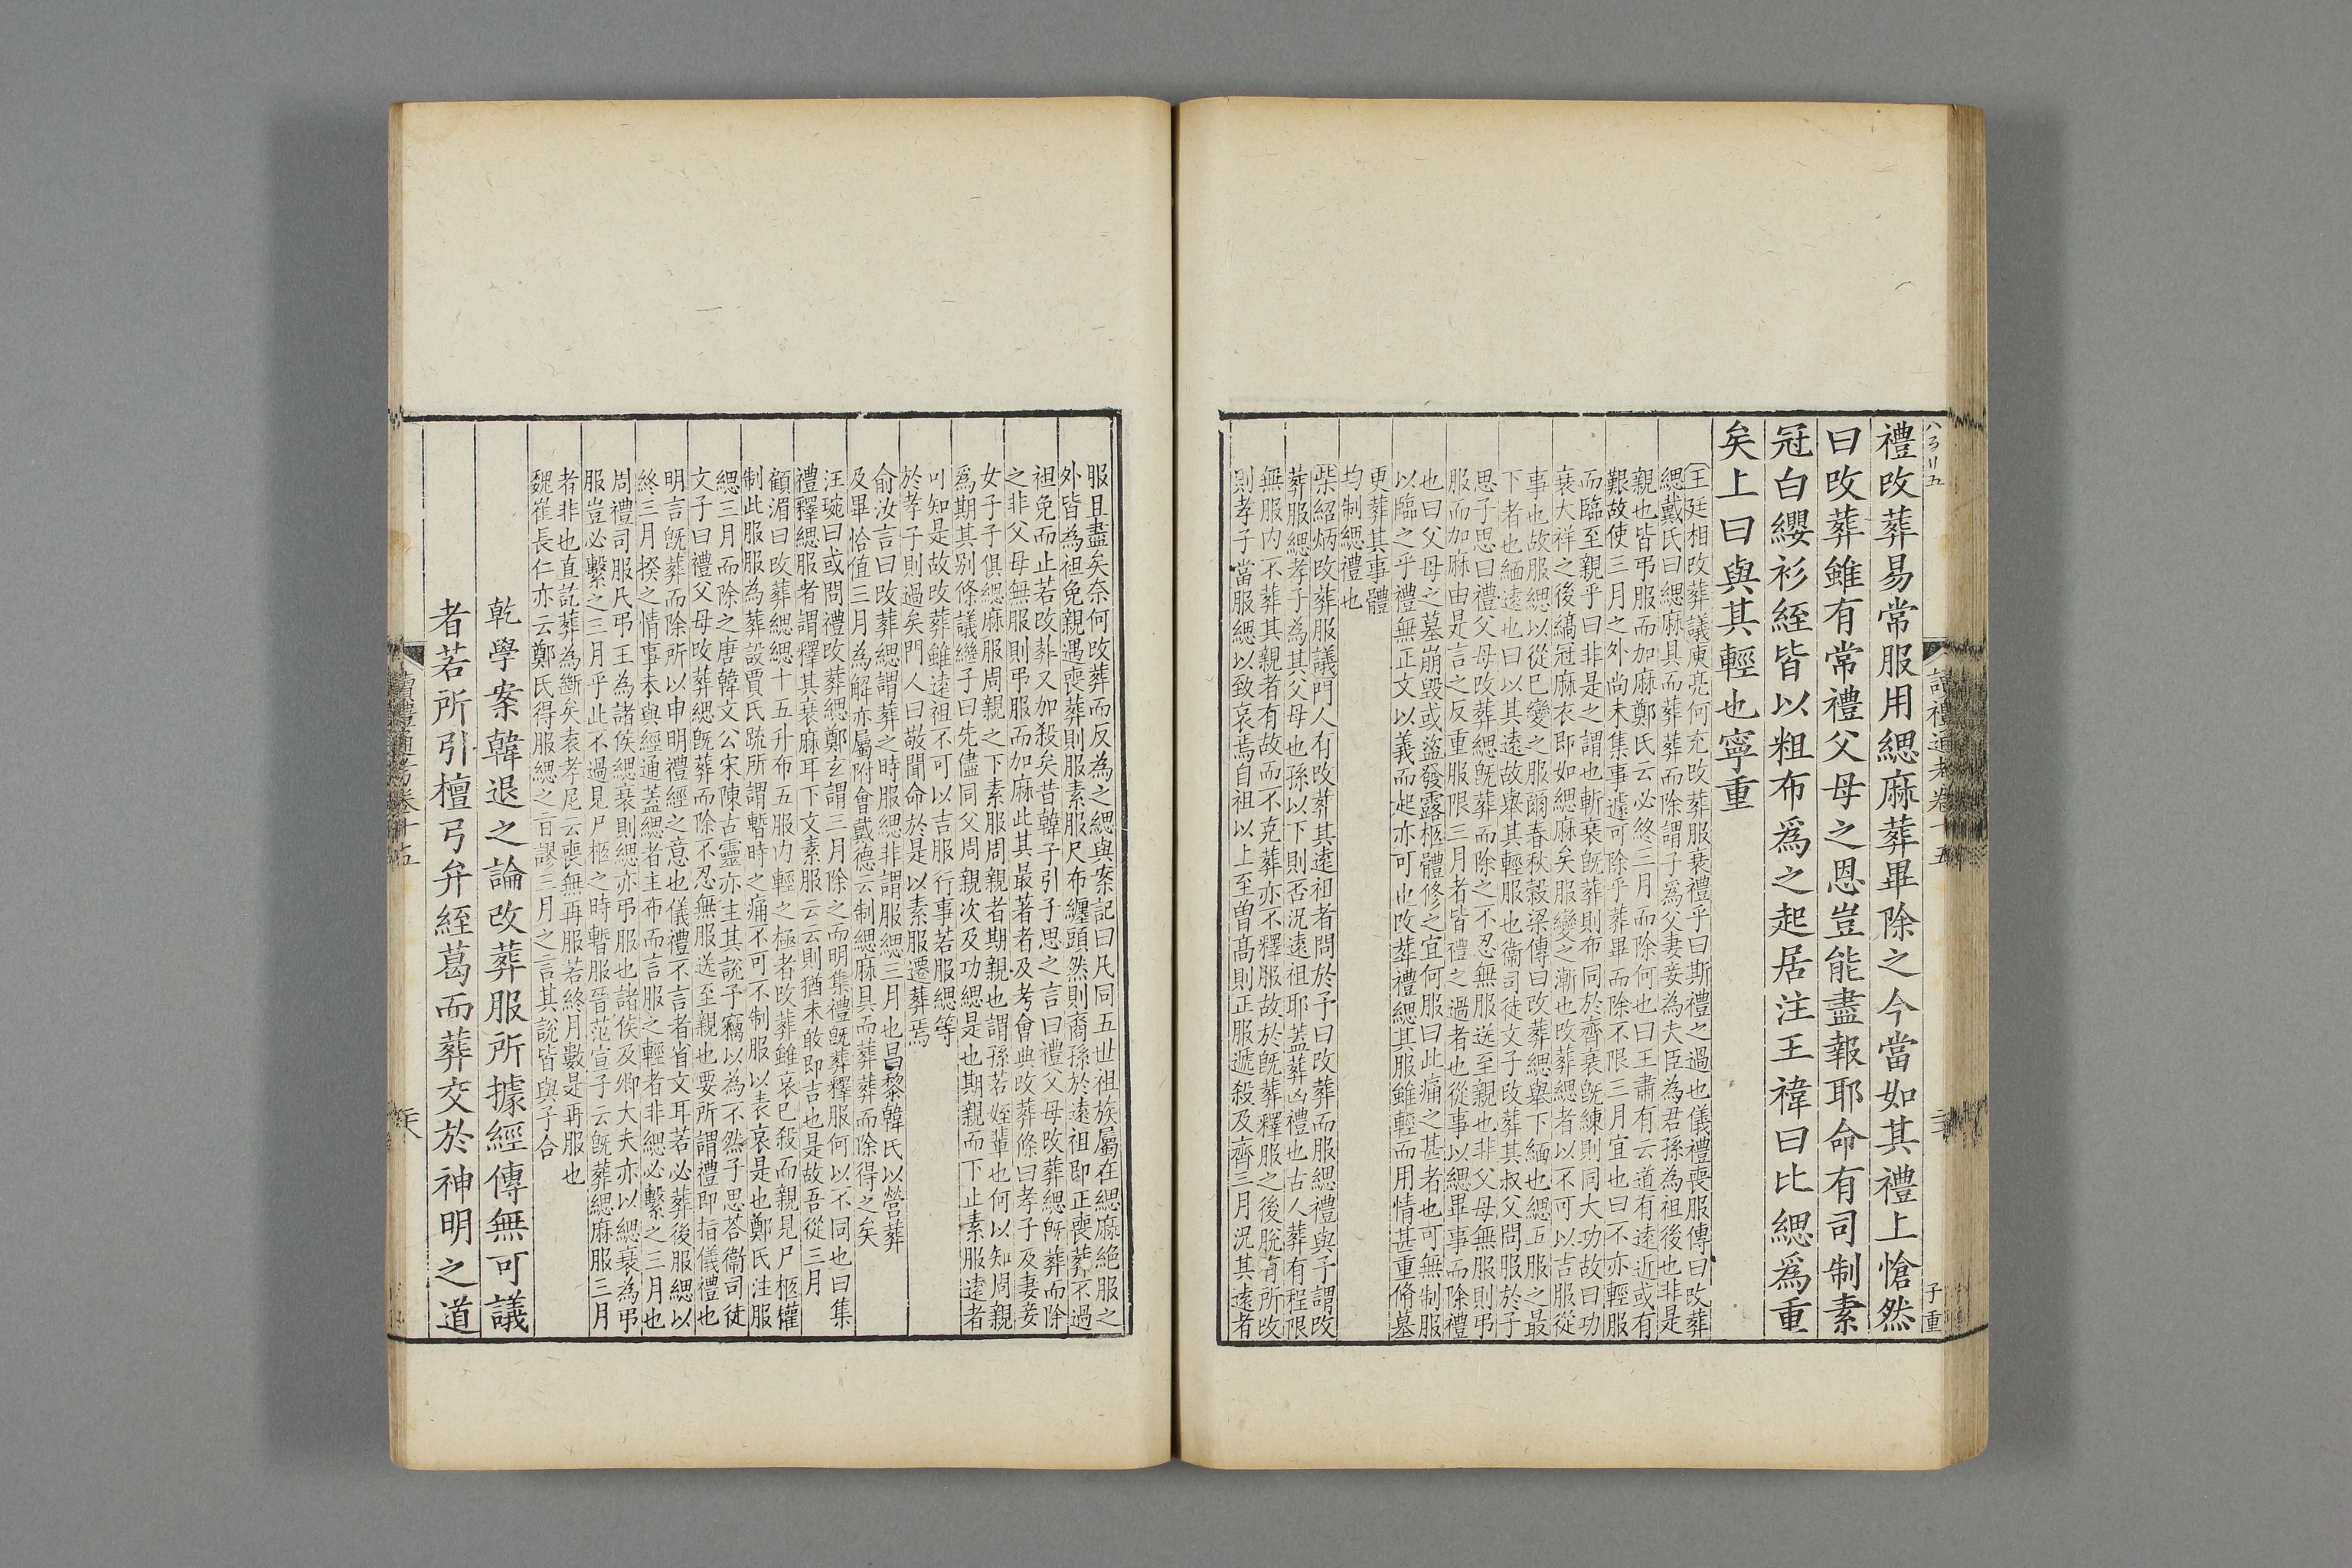 禮改葬易常服用緦麻葬畢除之今當如其禮上愴然
曰改葬雖有常禮父母之恩豈能盡報耶命有司制素
冠白纓衫絰皆以粗布爲之起居注王禕曰比緦爲重
矣上曰與其輕也寧重
王廷相改葬議庾亮何充改葬服衰禮乎曰斯禮之過也儀禮喪服傳曰改葬
緦戴氏曰緦麻具而葬葬而除謂子爲父妻妾為夫臣為君孫為祖後也非是
親也皆弔服而加麻鄭氏云必終三月而除何也曰王肅有云道有遠近或有
艱故使三月之外尚未集事遽可除乎葬畢而除不限三月宜也曰不亦輕服
而臨至親乎曰非是之謂也斬衰既葬則布同於齊衰既練則同大功故曰功
衰大祥之後縞冠麻衣即如緦麻矣服變之漸也改葬緦者以不可以吉服從
事也故服緦以從已變之服爾春秋穀梁傳曰改葬緦舉下緬也緦五服之最
下者也緬遠也曰以其遠故舉其輕服也衞司徒文子改葬其叔父問服於子
思子思曰禮父母改葬緦既葬而除之不忍無服送至親也非父母無服則弔
服而加麻由是言之反重服限三月者皆禮之過者也從事以緦畢事而除禮
也曰父母之墓崩毀或盜發露柩體修之宜何服曰此痛之甚者也可無制服
以臨之乎禮無正文以義而起亦可也改葬禮緦其服雖輕而用情甚重脩墓
更葬其事體
均制緦禮也
柴紹炳改葬服議門人有改葬其遠祖者問於予曰改葬而服緦禮與予謂改
葬服緦孝子為其父母也孫以下則否況遠祖耶蓋葬凶禮也古人葬有程限
無服內不葬其親者有故而不克葬亦不釋服故於既葬釋服之後脫有所改
則孝子當服緦以致哀焉自祖以上至曾高則正服遞殺及齊三月況其遠者
服且盡矣奈何改葬而反為之緦與案記曰凡同五世祖族屬在緦麻絕服之
外皆為袒免親遇喪葬則服素服尺布纏頭然則裔孫於遠祖即正喪葬不過
袒免而止若改葬又加殺矣昔韓子引子思之言曰禮父母改葬緦旣葬而除
之非父母無服則弔服而加麻此其最著者及考會典改葬條曰孝子及妻妾
女子子俱緦麻服周親之下素服周親者期親也謂孫若姪輩也何以知周親
爲期其别條議繼子曰先儘同父周親次及功緦是也期親而下止素服遠者
可知是故改葬雖遠祖不可以吉服行事若服緦等
於孝子則過矣門人曰敬聞命於是以素服遷葬焉
俞汝言曰改葬緦謂葬之時服緦非謂服緦三月也昌黎韓氏以營葬
及畢恰值三月為解亦屬附會戴德云制緦麻具而葬葬而除得之矣
汪琬曰或問禮改葬緦鄭玄謂三月除之而明集禮旣葬釋服何以不同也曰集
禮釋緦服者謂釋其衰麻耳下文素服云云則猶未敢即吉也是故吾從三月
顧湄曰改葬緦緦十五升布五服內輕之極者改葬雖哀已殺而親見尸柩權
制此服服為葬設賈氏疏所謂暫時之痛不可不制服以表哀是也鄭氏注服
緦三月而除之唐韓文公宋陳古靈亦主其說予竊以為不然子思荅衞司徒
文子曰禮父母改葬緦旣葬而除不忍無服送至親也要所謂禮即指儀禮也
明言旣葬而除所以申明禮經之意也儀禮不言者省文耳若必葬後服緦以
終三月揆之情事未與經通蓋緦者主布而言服之輕者非緦必繫之三月也
周禮司服凡弔王為諸侯緦衰則緦亦弔服也諸侯及卿大夫亦以緦衰為弔
服豈必繫之三月乎此不過見尸柩之時暫服晉范宣子云旣葬緦麻服三月
者非也直訖葬為斷矣袁孝尼云喪無再服若終月數是再服也
魏崔長仁亦云鄭氏得服緦之旨謬三月之言其說皆與予合
乾學案韓退之論改葬服所據經傳無可議
者若所引檀弓弁絰葛而葬交於神明之道
讀禮通考卷十五